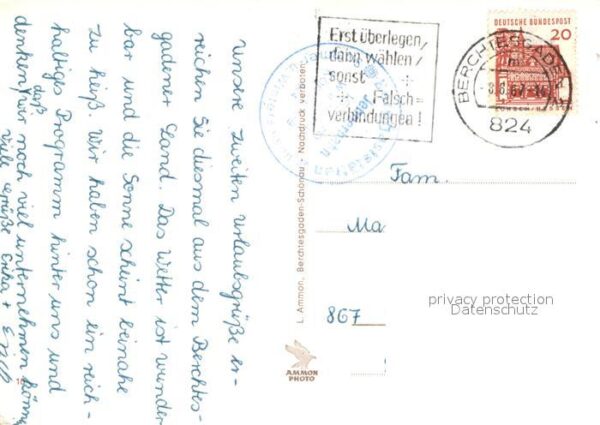 Unsere zweiten Urlaubsgrüße er-
reichen Sie diesmal aus dem Berchtes-
gadener Land. Das Wetter ist wunder
bar und die Sonne scheint beinahe
zu hieß. Wir haben schon ein reich-
haltiges Programm hinter uns und
denken, daß wir noch viel unternehmen können
Viele Grüße Erika +
L. Ammon, Berchtesgaden-Schönau · Nachdruck verboten
AMMON
PHOTO
Erst überlegen,
dann wählen,
sonst
Falsch=
verbindungen!
BERCHTESGADEN
8.8.67
824
DEUTSCHE BUNDESPOST
20
Fam.
Ma
867
privacy protection
Datenschutz